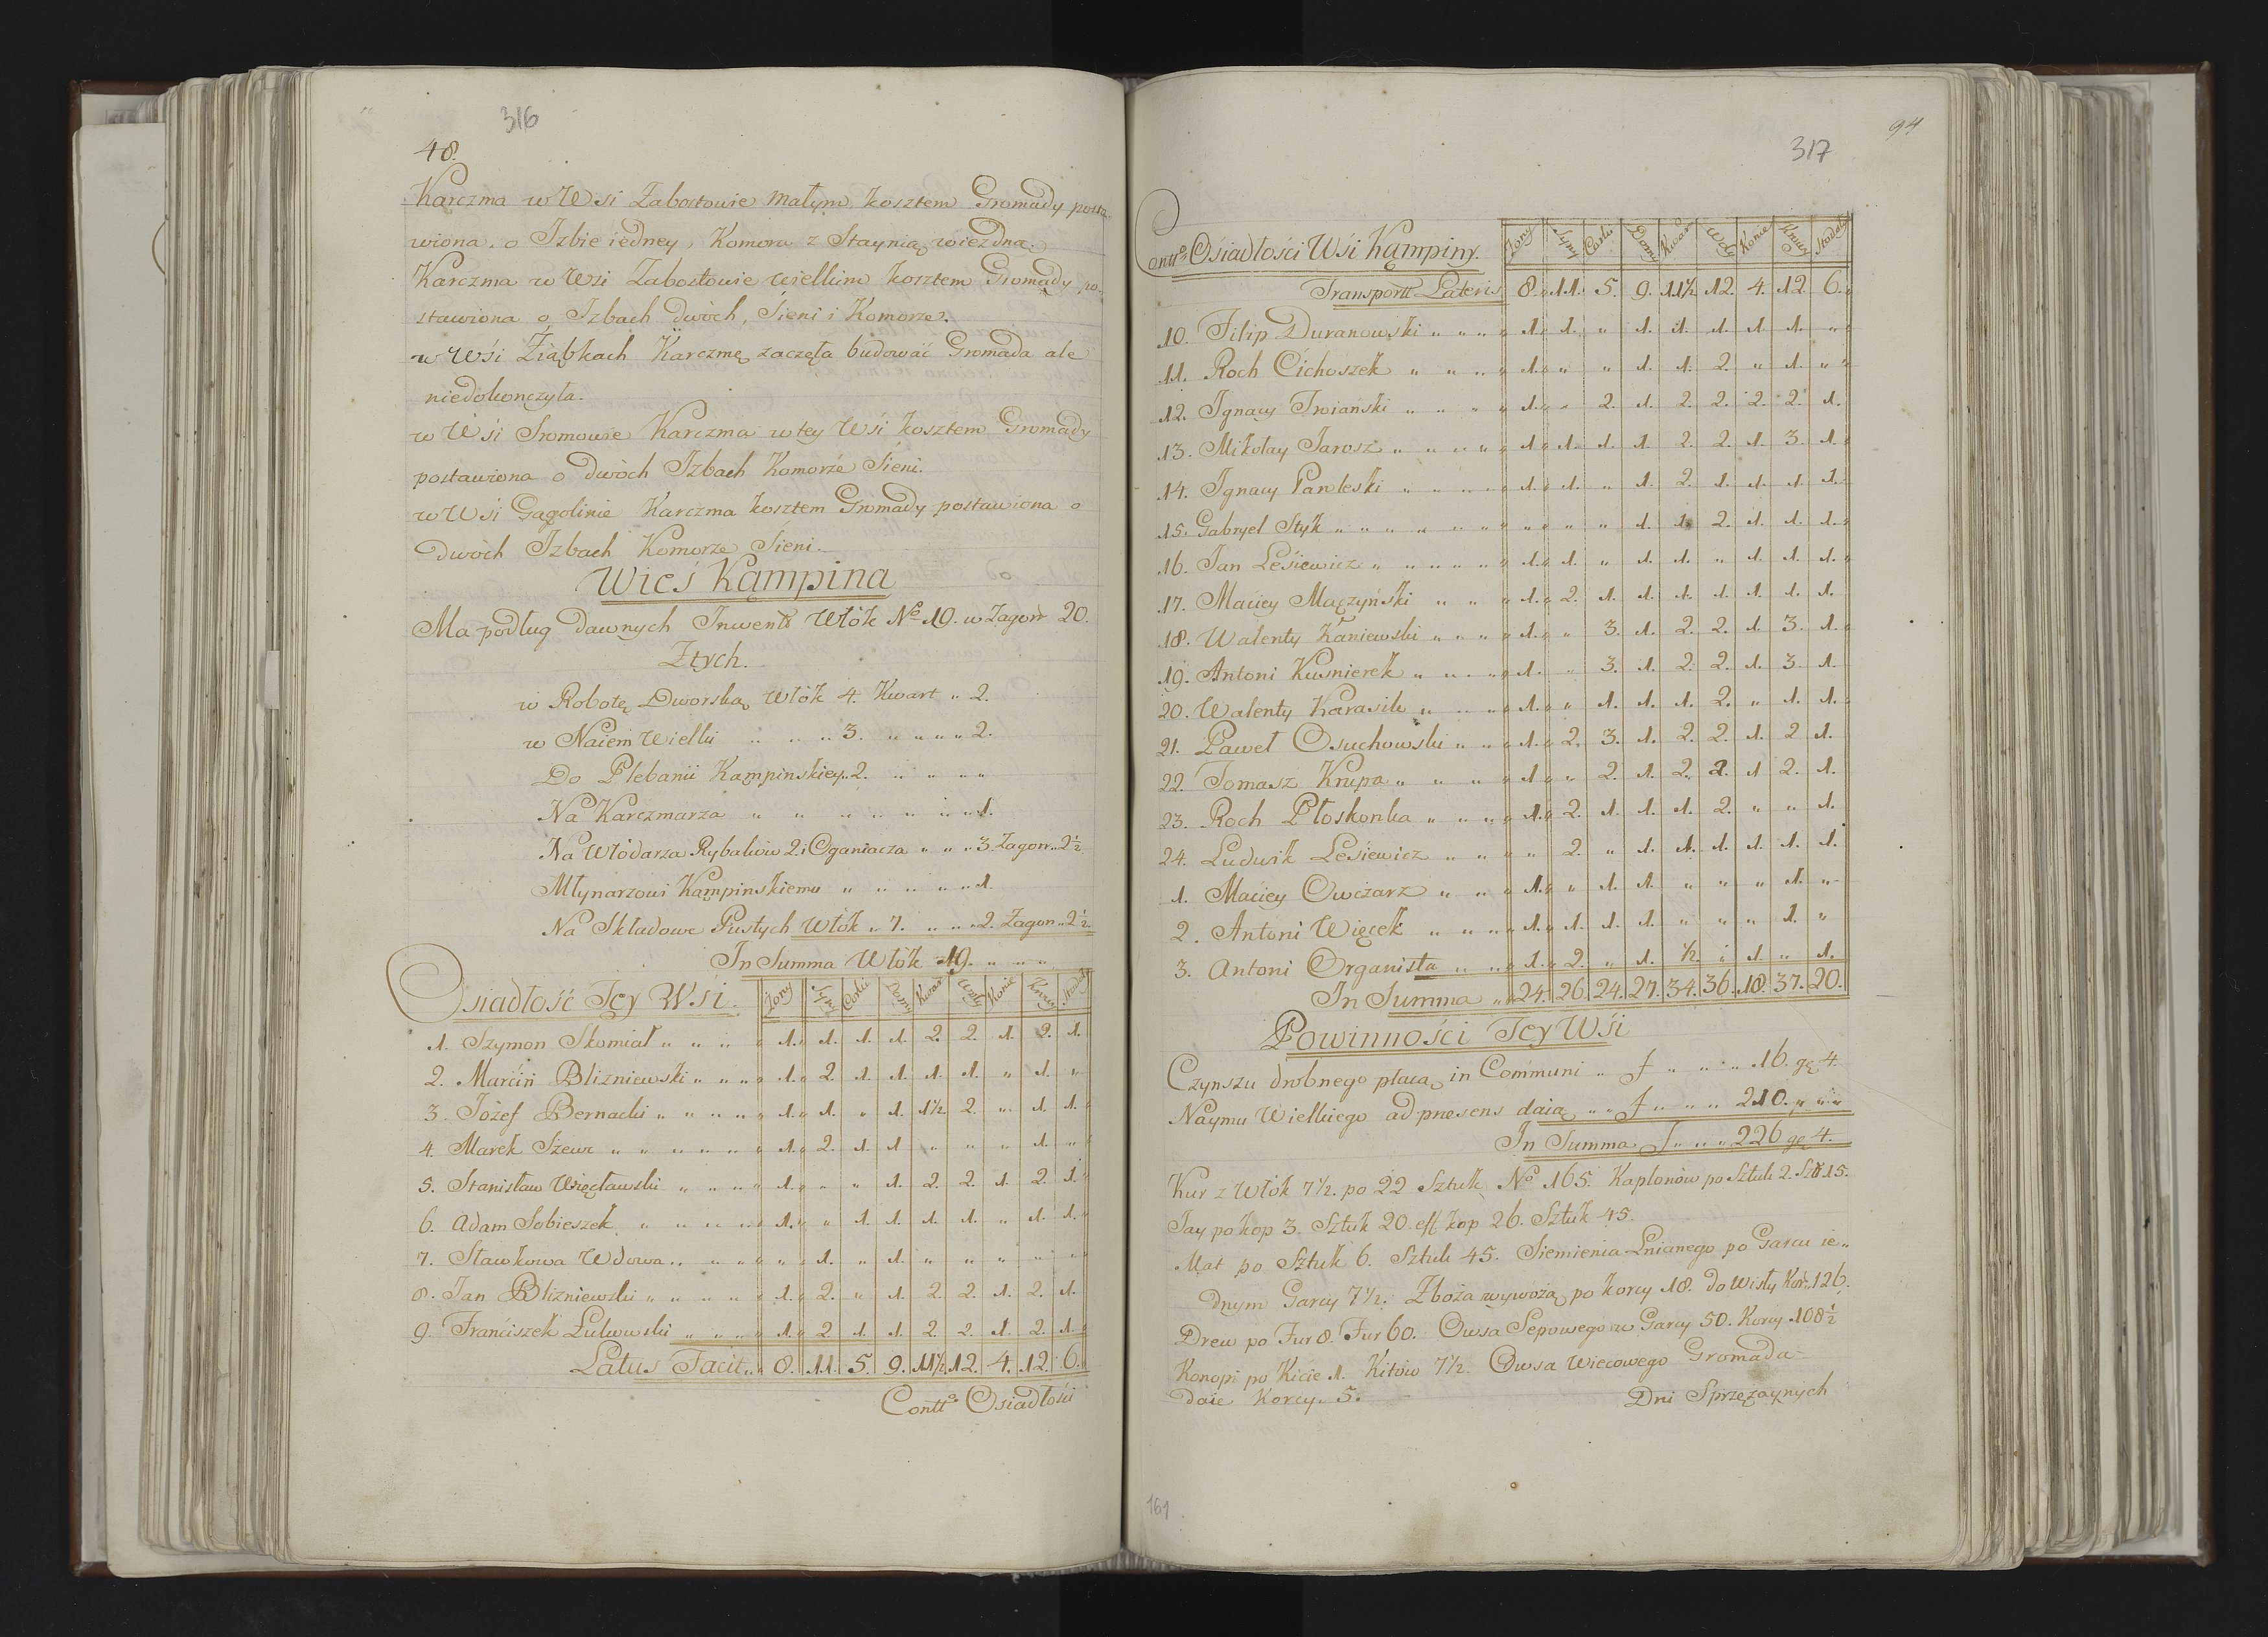 316
48.
Karczma w Wsi Zabostowie małym, kosztem Gromady posta„
wiona, o Izbie iedney, Komora z Staynią wiezdną.
Karczma w Wsi Zabostowie wielkim kosztem Gromady po„
stawiona o Izbach dwóch, Sieni i Komorze.
w Wsi Ziąbkach Karczmę zaczęła budować Gromada ale
niedokonczyła.
w Wsi Sromowie Karczma w tey Wsi kosztem Gromady
postawiona o dwóch Izbach Komorze Sieni.
w Wsi Gągolinie Karczma kosztem Gromady postawiona o
dwóch Izbach Komorze Sieni.
Wieś Kąmpina
Ma podług dawnych Inwent: Włók No 19. w Zagon 20.
Z tych.
w Robotę Dworską Włók 4. Kwart „ 2.
w Naiem Wielki „ „ „ 3. „ „ „ „ 2.
Do Plebanii Kąmpinskiey „ 2. „ „ „ „
Na Karczmarza „ „ „ „ „ „ „ 1.
Na Włódarza Rybaków 2 i Oganiacza „ „ „ 3 Zagon „ 2½
Młynarzowi Kąmpinskiemu „ „ „ „ „ 1.
Na Składowe Pustych Włók „ 7. „ „ „ 2. Zagon „ 2½.
In Summa Włók 19. „ „ „
Osiadłość Tey Wsi. Żony Syny Corki Domy Kwart Woły Konie Krowy Stadała
1. Szymon Skomiał „ „ „ „ 1. „ 1. 1. 1. 2. 2. 1. 2. 1.
2. Marcin Blizniewski „ „ „ „ 1. „ 2. 1. 1. 1. 1. „ 1. „
3. Iózef Bernacki „ „ „ „ „ 1. „ 1. „ 1. 1½ 2. „ 1. 1.
4. Marek Szewc „ „ „ „ „ „ 1. „ 2. 1. 1 „ „ „ 1. „
5. Stanisław Więcławski „ „ „ „ 1. „ „ „ 1. 2. 2. 1. 2. 1.
6. Adam Sobieszek „ „ „ „ „ 1. „ „ 1. 1. 1. 1. „ 1. 1.
7. Sławkowa Wdowa „ „ „ „ „ „ 1. „ 1. „ „ „ „ „
8. Ian Blizniewski „ „ „ „ „ 1. „ 2. „ 1. 2. 2. 1. 2. 1.
9. Franciszek Lulwuski „ „ „ „ 1. „ 2. 1. 1. 2. 2. 1. 2. 1.
Latus Facit „ „ 8. 11. 5. 9. 11½ 12. 4. 12. 6.
Contto Osiadłości
94
317
Contto Osiadłości Wsi Kąmpiny. Żony Syny Corki Domy Kwart Woły Konie Krowy Stadała
Transportt Lateris 8. „ 11. 5. 9. 11½ 12. 4. 12. 6. „
10. Filip Duranowski „ „ „ „ 1. „ 1. „ 1. 1. 1. 1. 1. „
11. Roch Cichoszek „ „ „ „ 1. „ „ „ 1. 1. 2. „ 1. „
12. Ignacy Trviański „ „ „ „ 1. „ „ 2. 1. 2. 2. 2. 2. 1.
13. Mikołay Iarosz „ „ „ „ „ 1 „ 1. 1. 1. 2. 2. 1. 3. 1.
14. Ignacy Pawleski „ „ „ „ „ 1. „ 1. „ 1. 2. 1. 1. 1. 1.
15. Gabryel Styk „ „ „ „ „ „ „ „ „ „ „ 1. 1. 2. 1. 1. 1.
16. Ian Lesiewicz „ „ „ „ „ „ 1. „ 1. „ 1. 1. „ 1. 1. 1.
17. Maciey Mączyński „ „ „ 1. „ 2. 1. 1. 1. 1. 1. 1. 1.
18. Walenty Kaniewski „ „ „ „ 1. „ „ 3. 1. 2. 2. 1 3. 1.
19. Antoni Kusnierek „ „ „ „ 1. „ 3. 1. 2. 2. 1. 3. 1.
20. Walenty Karasik „ „ „ „ 1. „ „ 1. 1. 1. 2. „ 1. 1.
21. Paweł Osuchowski „ „ „ 1. „ 2. 3. 1. 2. 2. 1. 2 1.
22. Tomasz Krupa „ „ „ „ 1 „ „ 2. 1. 2. 2. 1 2. 1.
23. Roch Płoskonka „ „ „ „ 1. „ 2. 1. 1. 1. 2. „ „ 1.
24. Ludwik Lesiewicz „ „ „ „ 2. „ 1. 1. 1. 1. 1. 1.
1. Maciey Owczarz „ „ „ 1. „ „ 1. 1. „ „ „ 1. „
2. Antoni Więcek „ „ „ „ 1. „ 1. 1. 1. „ „ „ 1. „
3. Antoni Organista „ „ „ 1. „ 2. „ 1. ½. „ 1. „ 1.
In Summa „ „ 24. 26. 24. 27. 34. 36. 18. 37. 20.
Powinności Tey Wsi
Czynszu drobnego płacą in Communi „ f „ „ „ „ 16. gę. 4.
Naymu Wielkiego ad præsens daią „ „ f „ „ „ 210. „ „
In Summa f „ „ „ 226 gę 4.
Kur z Włók 7½. po 22 Sztuk No 165. Kapłonów po Sztuk 2. Szt: 15.
Iay po kop 3. Sztuk 20. eff kop 26. Sztuk 45.
Mat po Sztuk 6. Sztuk 45. Siemienia Lnianego po Garcu ie„
dnym Garcy 7½. Zboża wywożą po korcy 18. do Wisły Kor: 126.
Drew po Fur 8. Fur 60. Owsa Sepowego w Garcy 50. Korcy 108½
Konopi po Kicie 1. Kitów 7½. Owsa wiecowego Gromada
daie Korcy. 5.
Dni Sprzęzaynych
161